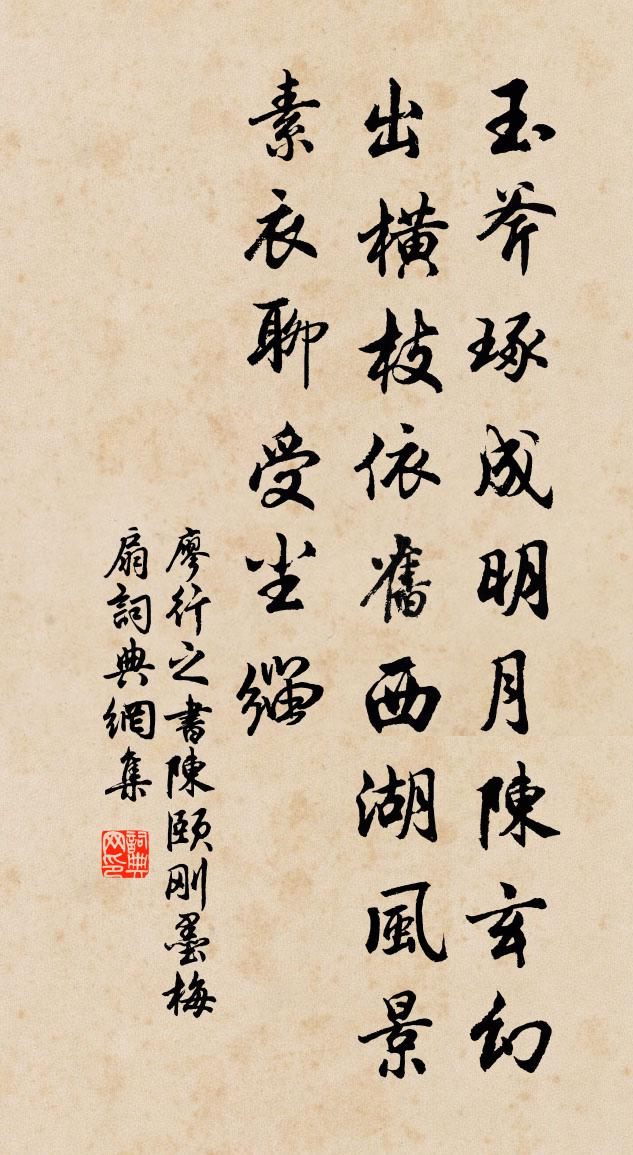 玉斧琢成明月陳玄幻
出橫枝依舊西湖風景
素衣聊受尘緇
廖行之書陳頤剛墨梅
扇詞典網集
詞典网印